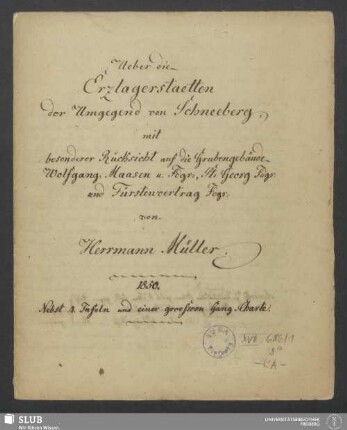 Ueber die
Erzlagerstaetten
der Umgegend von Schneeberg,
mit
besonderer Rücksicht auf die Grubengebäude
Wolfgang, Maasen u. Fdgr., St. Georg Fdgr.
und Fürstenvertrag Fdgr.
von
Herrmann Müller.
1850.
Nebst 3 Tafeln und einer grossen Gang-Charte.
XVII
SLUB
Wir führen Wissen.
UNIVERSITÄTSBIBLIOTHEK
FREIBERG